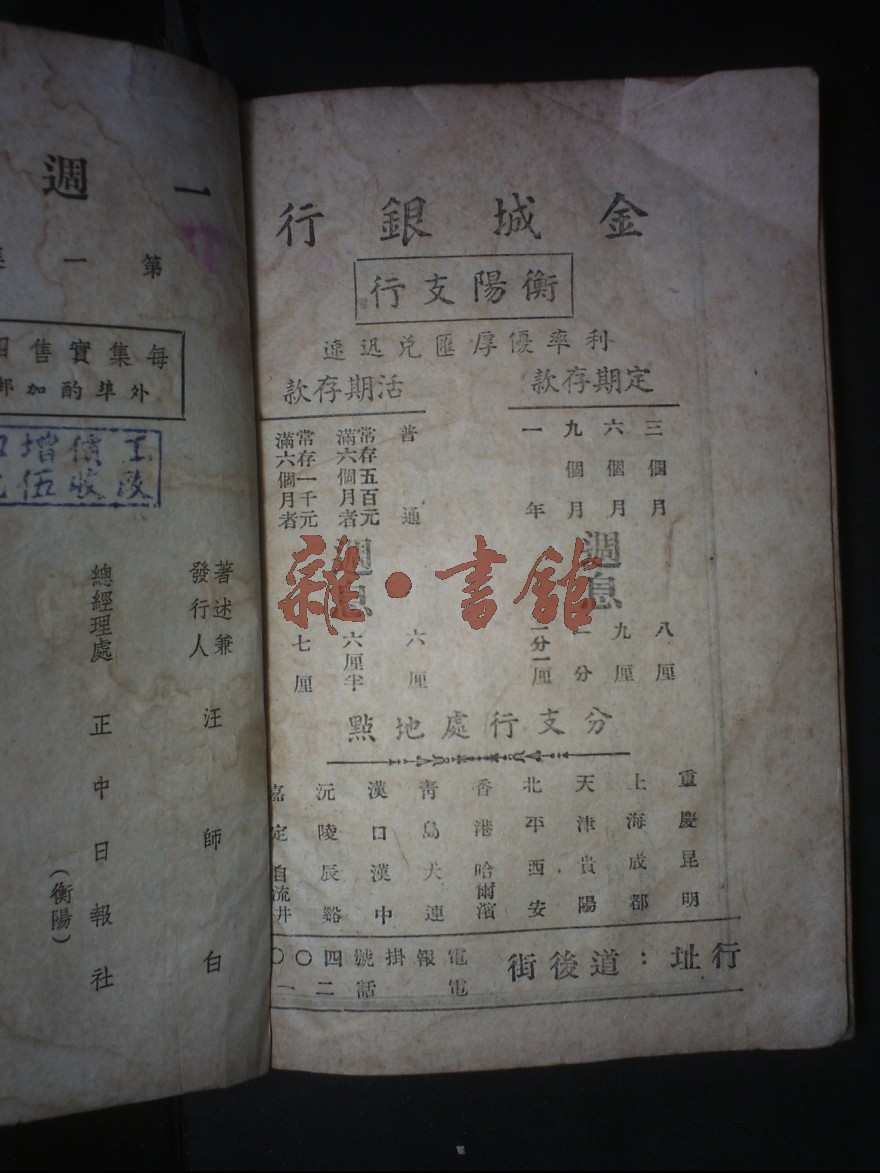 金城銀行
衡陽支行
利率優厚匯兌迅速
定期存款
三個月 週息 八厘
六個月 週息 九厘
九個月 週息 一分
一年 週息 一分一厘
活期存款
普通 週息 六厘
常存五百元滿六個月者 週息 六厘半
常存一千元滿六個月者 週息 七厘
分支行處地點
重慶 昆明
上海 成都
天津 貴陽
北平 西安
香港 哈爾濱
青島 大連
漢口 漢中
沅陵 辰谿
嘉定 自流井
行址：道後街
電報掛號四〇〇
電話二一
一週
第一
每集實售
外埠酌加郵
著述兼發行人 汪師白
總經理處 正中日報社
(衡陽)
雜·書館